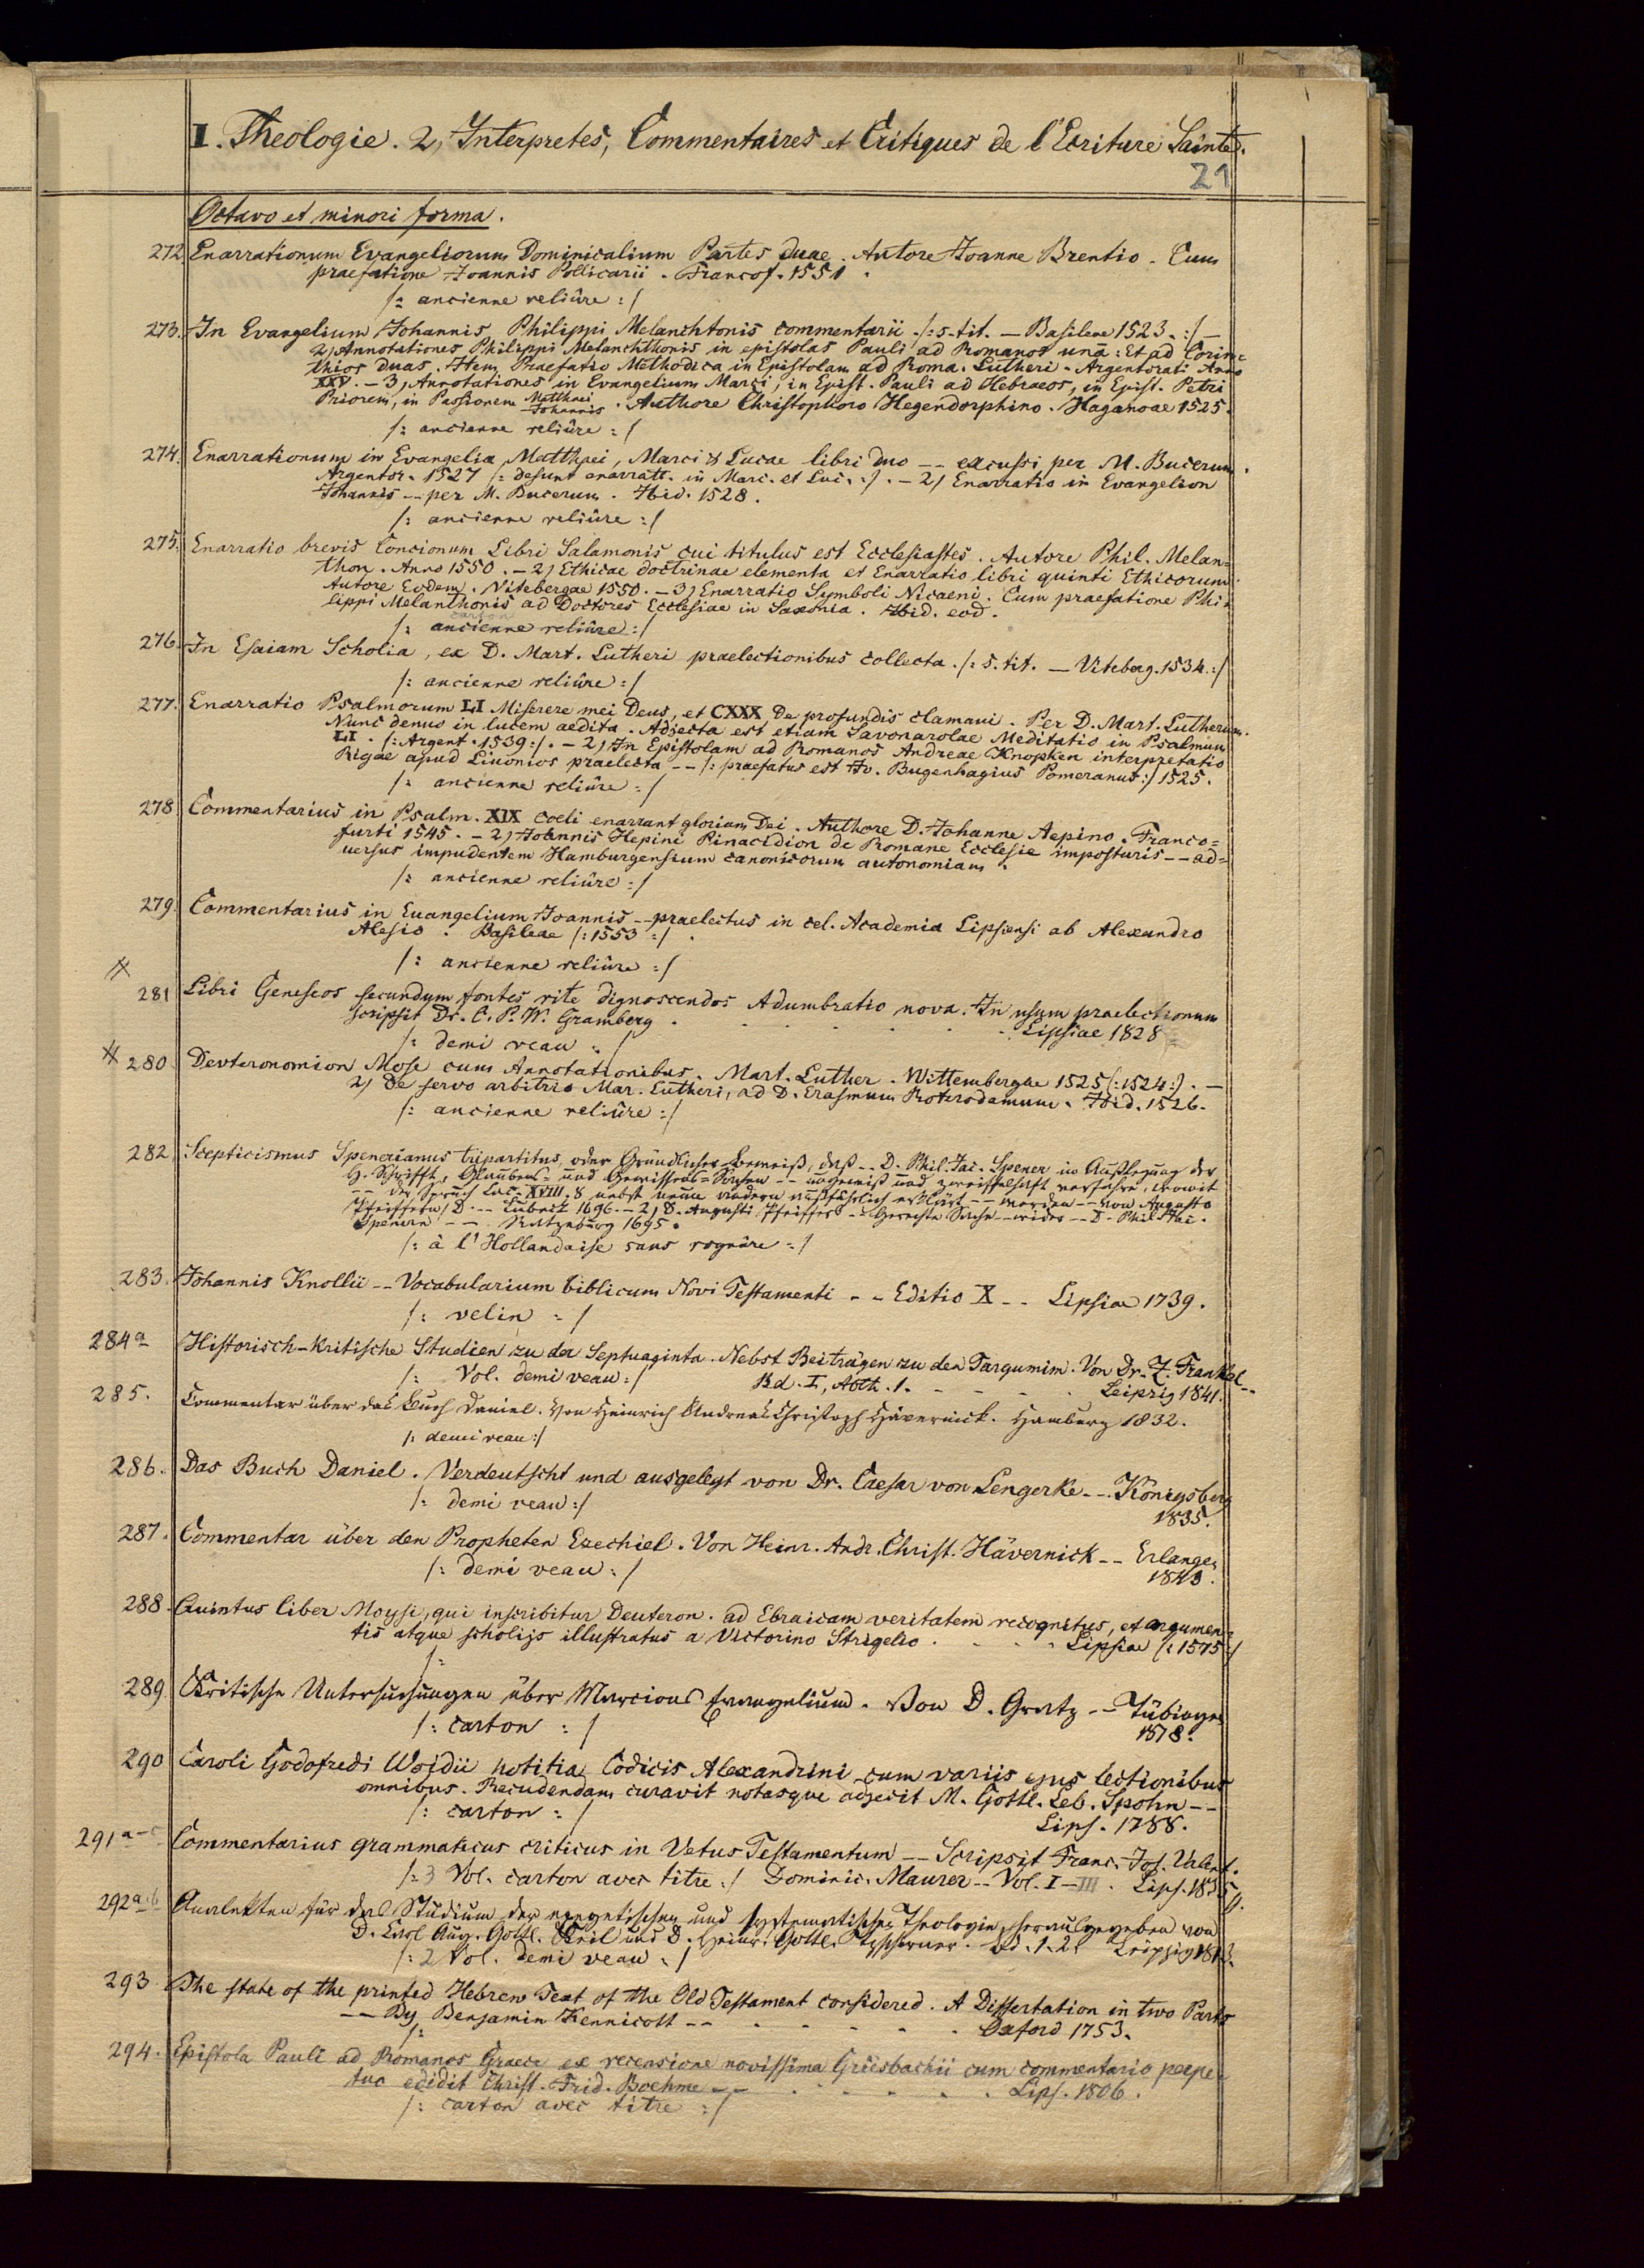 I. Theologie. 2, Interpretes, Commentaires et Critiques de l'Ecriture Sainte.
21
Octavo et minori forma.
272 Enarrationum Evangeliorum Dominicalium Partes duae. Autore Joanne Brentio. Cum
praefatione Joannis Pollicarii. Francof. 1551.
/: ancienne reliûre :/
273. In Evangelium Johannis Philippi Melanchtonis commentarii. /: s. tit. — Basileae 1523. :/ —
2, Annotationes Philippi Melanchthonis in epistolas Pauli ad Romanos unā: Et ad Corin=
thios duas. Item Praefatio Methodica in Epistolam ad Roma. Lutheri. Argentorati Anno
XXV. — 3, Annotationes in Evangelium Marci, in Epist. Pauli ad Hebraeos, in Epist. Petri
Priorem, in Passionem Matthaei Johannis. Authore Christophoro Hegendorphino. Haganoae 1525.
/: ancienne reliûre :/
274. Enarrationum in Evangelia Matthaei, Marci & Lucae libri duo -- excussi per M. Bucerum.
Argentor. 1527 /: desunt enarratt. in Marc. et Luc. :/. — 2, Enarratio in Evangelion
Johannis -- per M. Bucerum. Ibid. 1528.
/: ancienne reliûre :/
275. Enarratio brevis Concionum Libri Salamonis cui titulus est Ecclesiastes. Autore Phil. Melan=
thon. Anno 1550. — 2, Ethicae doctrinae elementa et Enarratio libri quinti Ethicorum.
Autore Eodem. Vitebergae 1550. — 3, Enarratio Symboli Nicaeni. Cum praefatione Phi=
lippi Melanthonis ad Doctores Ecclesiae in Saxonia. Ibid. eod.
carton
/: ancienne reliûre :/
276. In Esaiam Scholia, ex D. Mart. Lutheri praelectionibus collecta. /: s. tit. — Viteberg. 1534. :/
/: ancienne reliûre :/
277. Enarratio Psalmorum LI Miserere mei Deus, et CXXX De profundis clamaui. Per D. Mart. Lutherum.
Nunc denuo in lucem aedita. Adjecta est etiam Savonarolae Meditatio in Psalmum
LI. /: Argent. 1539 :/. — 2, In Epistolam ad Romanos Andreae Knopken interpretatio
Rigae apud Liuonios praelecta -- /: praefatus est Jo. Bugenhagius Pomeranus :/ 1525.
/: ancienne reliûre :/
278 Commentarius in Psalm. XIX Coeli enarrant gloriam Dei. Authore D. Johanne Aepino. Franco=
furti 1545. — 2, Joannis Hepini Pinacidion de Romane Ecclesie imposturis -- ad=
uersus impudentem Hamburgensium canonicorum autonomiam.
/: ancienne reliûre :/
279. Commentarius in Euangelium Joannis -- praelectus in cel. Academia Lipsiensi ab Alexandro
Alesio. Basileae /: 1553 :/.
/: ancienne reliûre :/
281 Libri Geneseos secundum fontes rite dignoscendos Adumbratio nova. In usum praelectionum
scripsit Dr. C. P. W. Gramberg. Lipsiae 1828
/: demi veau :/
280 Devteronomion Mose cum Annotationibus. Mart. Luther. Wittembergae 1525 (: 1524 :). —
2, De servo arbitrio Mar. Lutheri, ad D. Erasmum Roterodamum. Ibid. 1526.
/: ancienne reliûre :/
282 Scepticismus Spenerianus tripartitus, oder Gründlicher Beweiß, daß -- D. Phil. Jac. Spener in Außlegung der
H. Schrifft, Glaubens= und Gewissens=Sachen -- ungewiß und zweiffelhaft verfahre, womit
-- der Spruch Luc. XVIII. 8 nebst neun andern außführlich erklärt -- werden -- von Augusto
Pfeiffern, D. -- Lübeck 1696. — 2, D. Augusti Pfeiffers -- Gerechte Sache -- wider -- D. Phil. Jac.
Spenern -- Ratzeburg 1695.
/: à l'Hollandaise sans rognûre :/
283. Johannis Knollii -- Vocabularium biblicum Novi Testamenti -- Editio X -- Lipsiae 1739.
/: velin :/
284a Historisch-kritische Studien zu der Septuaginta. Nebst Beiträgen zu den Targumim. Von Dr. Z. Frankel --
/: Vol. demi veau :/ Bd. I, Abth. 1. Leipzig 1841.
285. Commentar über das Buch Daniel. Von Heinrich Andreas Christoph Hävernick. Hamburg 1832.
/: demi veau :/
286. Das Buch Daniel. Verdeutscht und ausgelegt von Dr. Caesar von Lengerke -- Königsberg
/: demi veau :/ 1835.
287. Commentar über den Propheten Ezechiel. Von Heinr. Andr. Christ. Hävernick -- Erlangen
/: demi veau :/ 1843.
288. Quintus liber Moysi, qui inscribitur Deuteron. ad Ebraicam veritatem recognitus, et argumen=
tis atque scholijs illustratus a Victorino Strigelio. Lipsiae /: 1575 :/
/:
289. Kritische Untersuchungen über Marcions Evangelium. Von D. Gratz -- Tübingen
/: carton :/ 1818.
290 Caroli Godofredi Woidii notitia Codicis Alexandrini cum variis ejus lectionibus
omnibus. Recudendam curavit notasque adjecit M. Gottl. Leb. Spohn --
/: carton :/ Lips. 1788.
291a-c Commentarius grammaticus criticus in Vetus Testamentum -- Scripsit Franc. Jos. Valent.
/: 3 Vol. carton avec titre :/ Dominic. Maurer -- Vol. I-III. Lips. 1835
292a.b Analekten für das Studium der exegetischen und systematischen Theologie, herausgegeben von
D. Carl Aug. Gottl. Keil und D. Heinr. Gottl. Tzschirner. Bd. 1. 2. Leipzig 1813.
/: 2 Vol. demi veau :/
293 The state of the printed Hebrew Text of the Old Testament considered. A Dissertation in two Parts
-- By Benjamin Kennicott -- Oxford 1753.
/:
294. Epistola Pauli ad Romanos Graece ex recensione novissima Griesbachii cum commentario perpe=
tuo edidit Christ. Frid. Boehme -- Lips. 1806.
/: carton avec titre :/